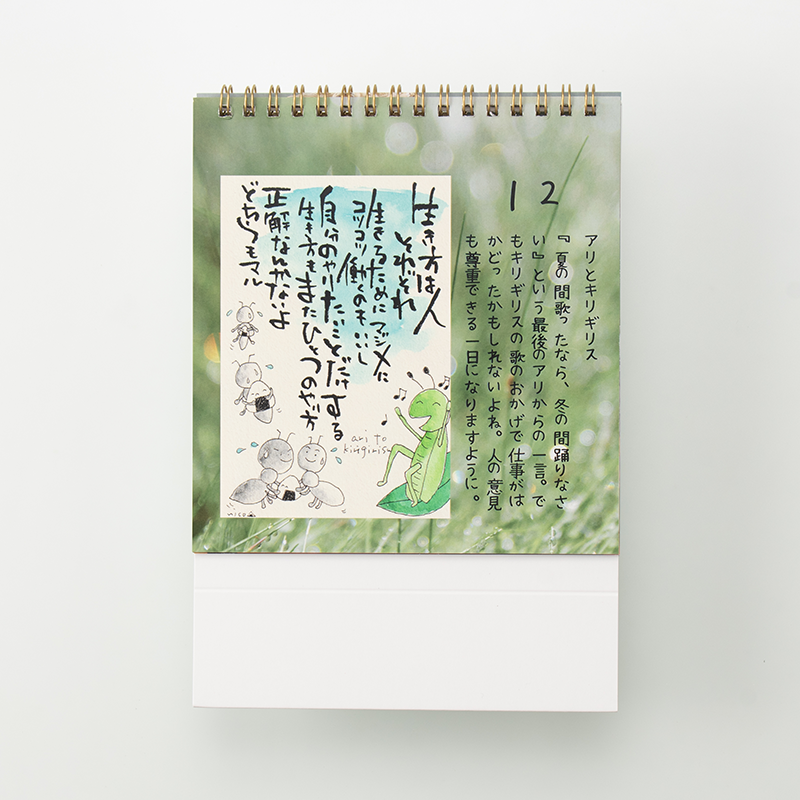 12
アリとキリギリス
『夏の間歌ったなら、冬の間踊りなさ
い』という最後のアリからの一言。で
もキリギリスの歌のおかげで仕事がは
かどったかもしれないよね。人の意見
も尊重できる一日になりますように。
生き方は人
それぞれ
生きるためにマジメに
コツコツ働くのもいいし
自分のやりたいことだけする
生き方もまたひとつのやり方
正解なんかないよ
どちらもマル
ari to
kirigirisu